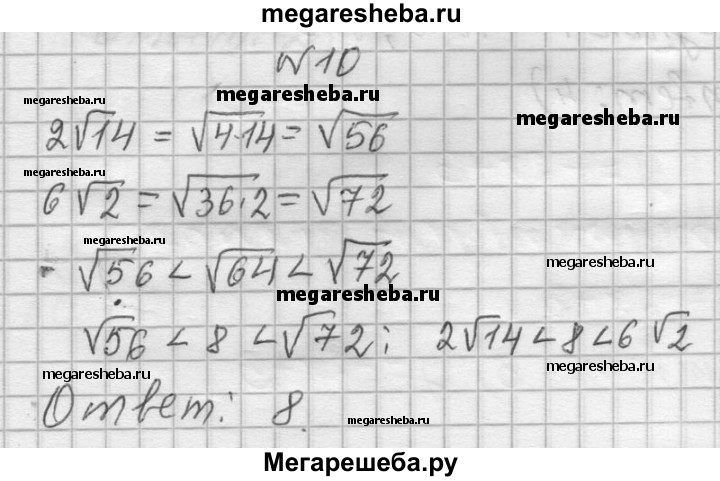 megaresheba.ru
№10
megaresheba.ru
megaresheba.ru
megaresheba.ru
2√14 = √4·14 = √56
6√2 = √36·2 = √72
megaresheba.ru
√56 < √64 < √72
megaresheba.ru
megaresheba.ru
√56 < 8 < √72; 2√14 < 8 < 6√2
megaresheba.ru
megaresheba.ru
Ответ: 8.
megaresheba.ru
Мегарешеба.ру